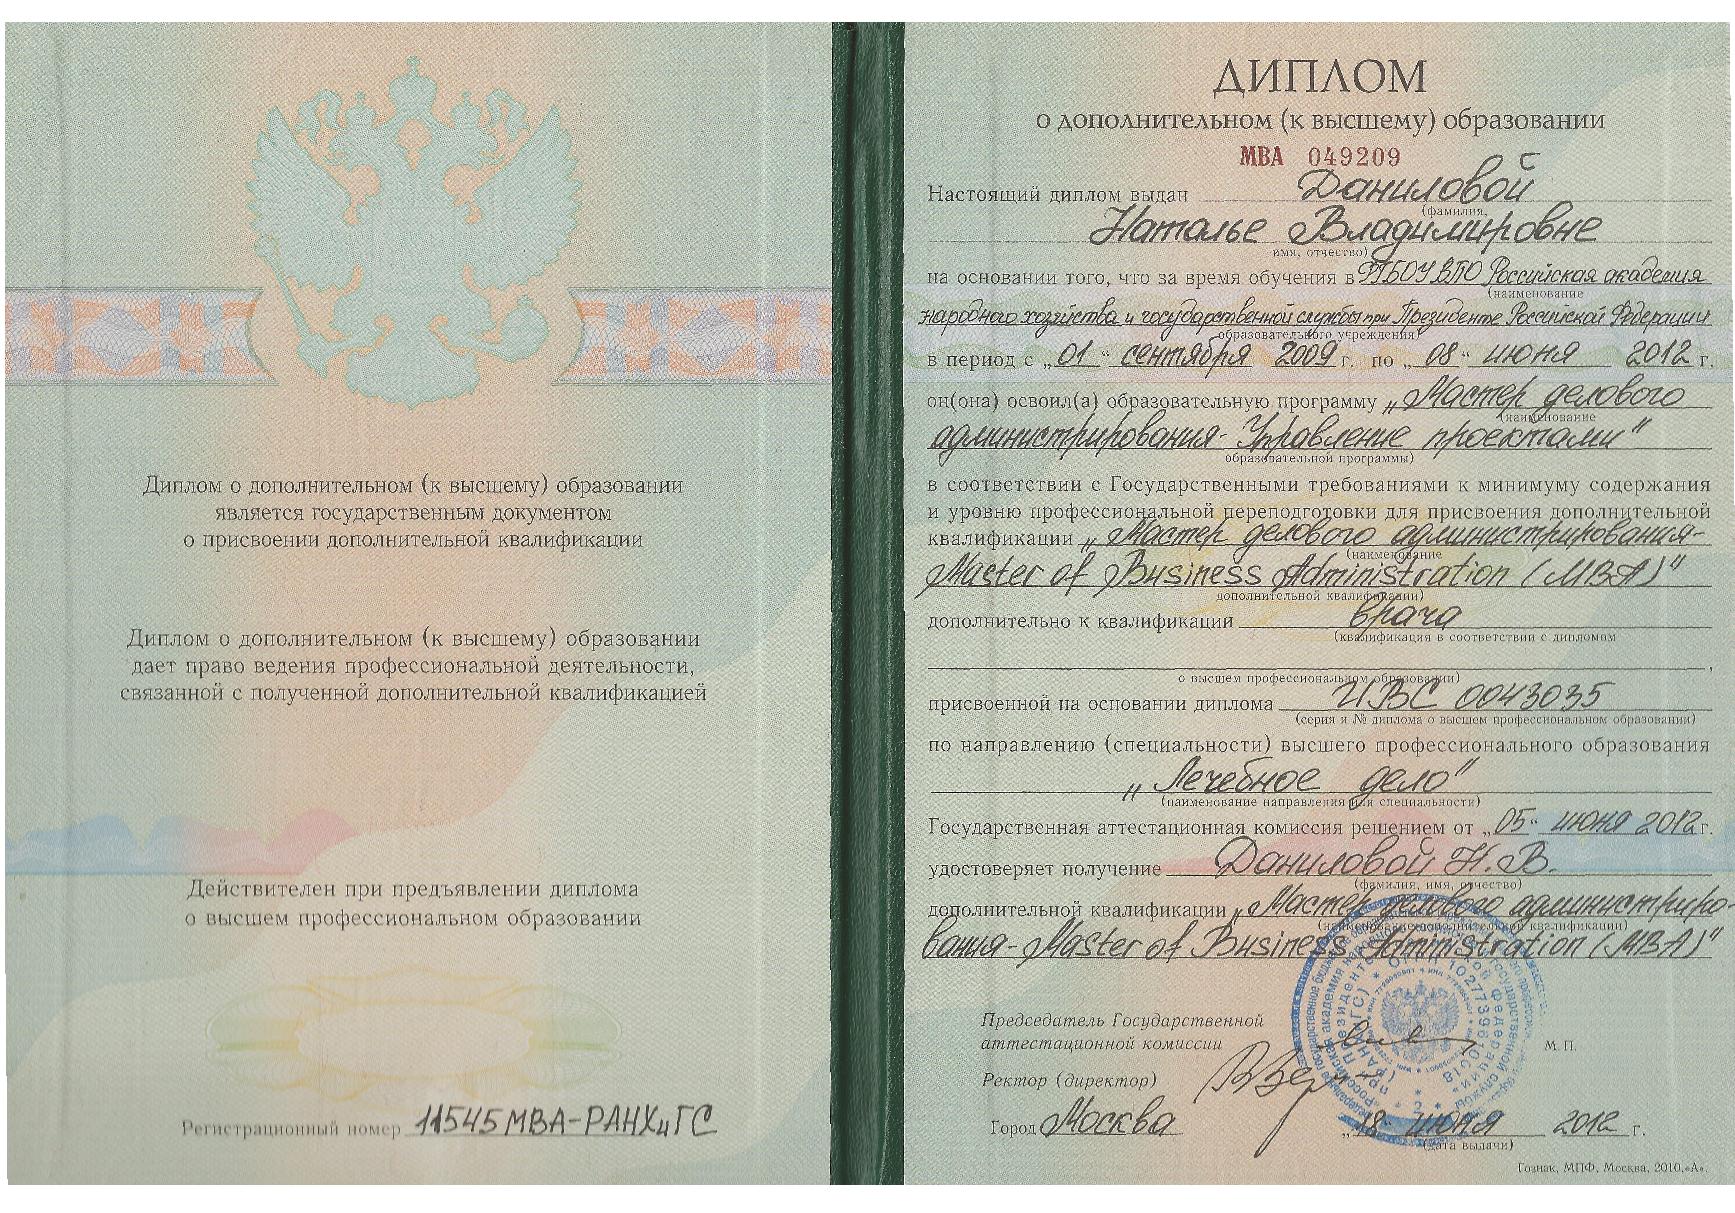 Диплом о дополнительном (к высшему) образовании
является государственным документом
о присвоении дополнительной квалификации
Диплом о дополнительном (к высшему) образовании
дает право ведения профессиональной деятельности,
связанной с полученной дополнительной квалификацией
Действителен при предъявлении диплома
о высшем профессиональном образовании
Регистрационный номер 11545 МВА-РАНХиГС
ДИПЛОМ
о дополнительном (к высшему) образовании
МВА 049209
Настоящий диплом выдан Даниловой
(фамилия,
Наталье Владимировне
имя, отчество)
на основании того, что за время обучения в ФГБОУ ВПО Российская академия
(наименование
народного хозяйства и государственной службы при Президенте Российской Федерации
образовательного учреждения)
в период с „01“ сентября 2009 г. по „08“ июня 2012 г.
он(она) освоил(а) образовательную программу „Мастер делового
(наименование
администрирования- Управление проектами"
образовательной программы)
в соответствии с Государственными требованиями к минимуму содержания
и уровню профессиональной переподготовки для присвоения дополнительной
квалификации „Мастер делового администрирования-
(наименование
Master of Business Administration (MBA)"
дополнительной квалификации)
дополнительно к квалификации врача
(квалификация в соответствии с дипломом
,
о высшем профессиональном образовании)
присвоенной на основании диплома ИВС 0043035
(серия и № диплома о высшем профессиональном образовании)
по направлению (специальности) высшего профессионального образования
„Лечебное дело"
(наименование направления или специальности)
Государственная аттестационная комиссия решением от „05“ июня 2012 г.
удостоверяет получение Даниловой Н.В.
(фамилия, имя, отчество)
дополнительной квалификации „Мастер делового администриро-
(наименование дополнительной квалификации)
вания- Master of Business Administration (MBA)"
Председатель Государственной
аттестационной комиссии
М. П.
Ректор (директор)
Город Москва
„18“ июня 2012 г.
(дата выдачи)
Гознак, МПФ, Москва, 2010, «А».